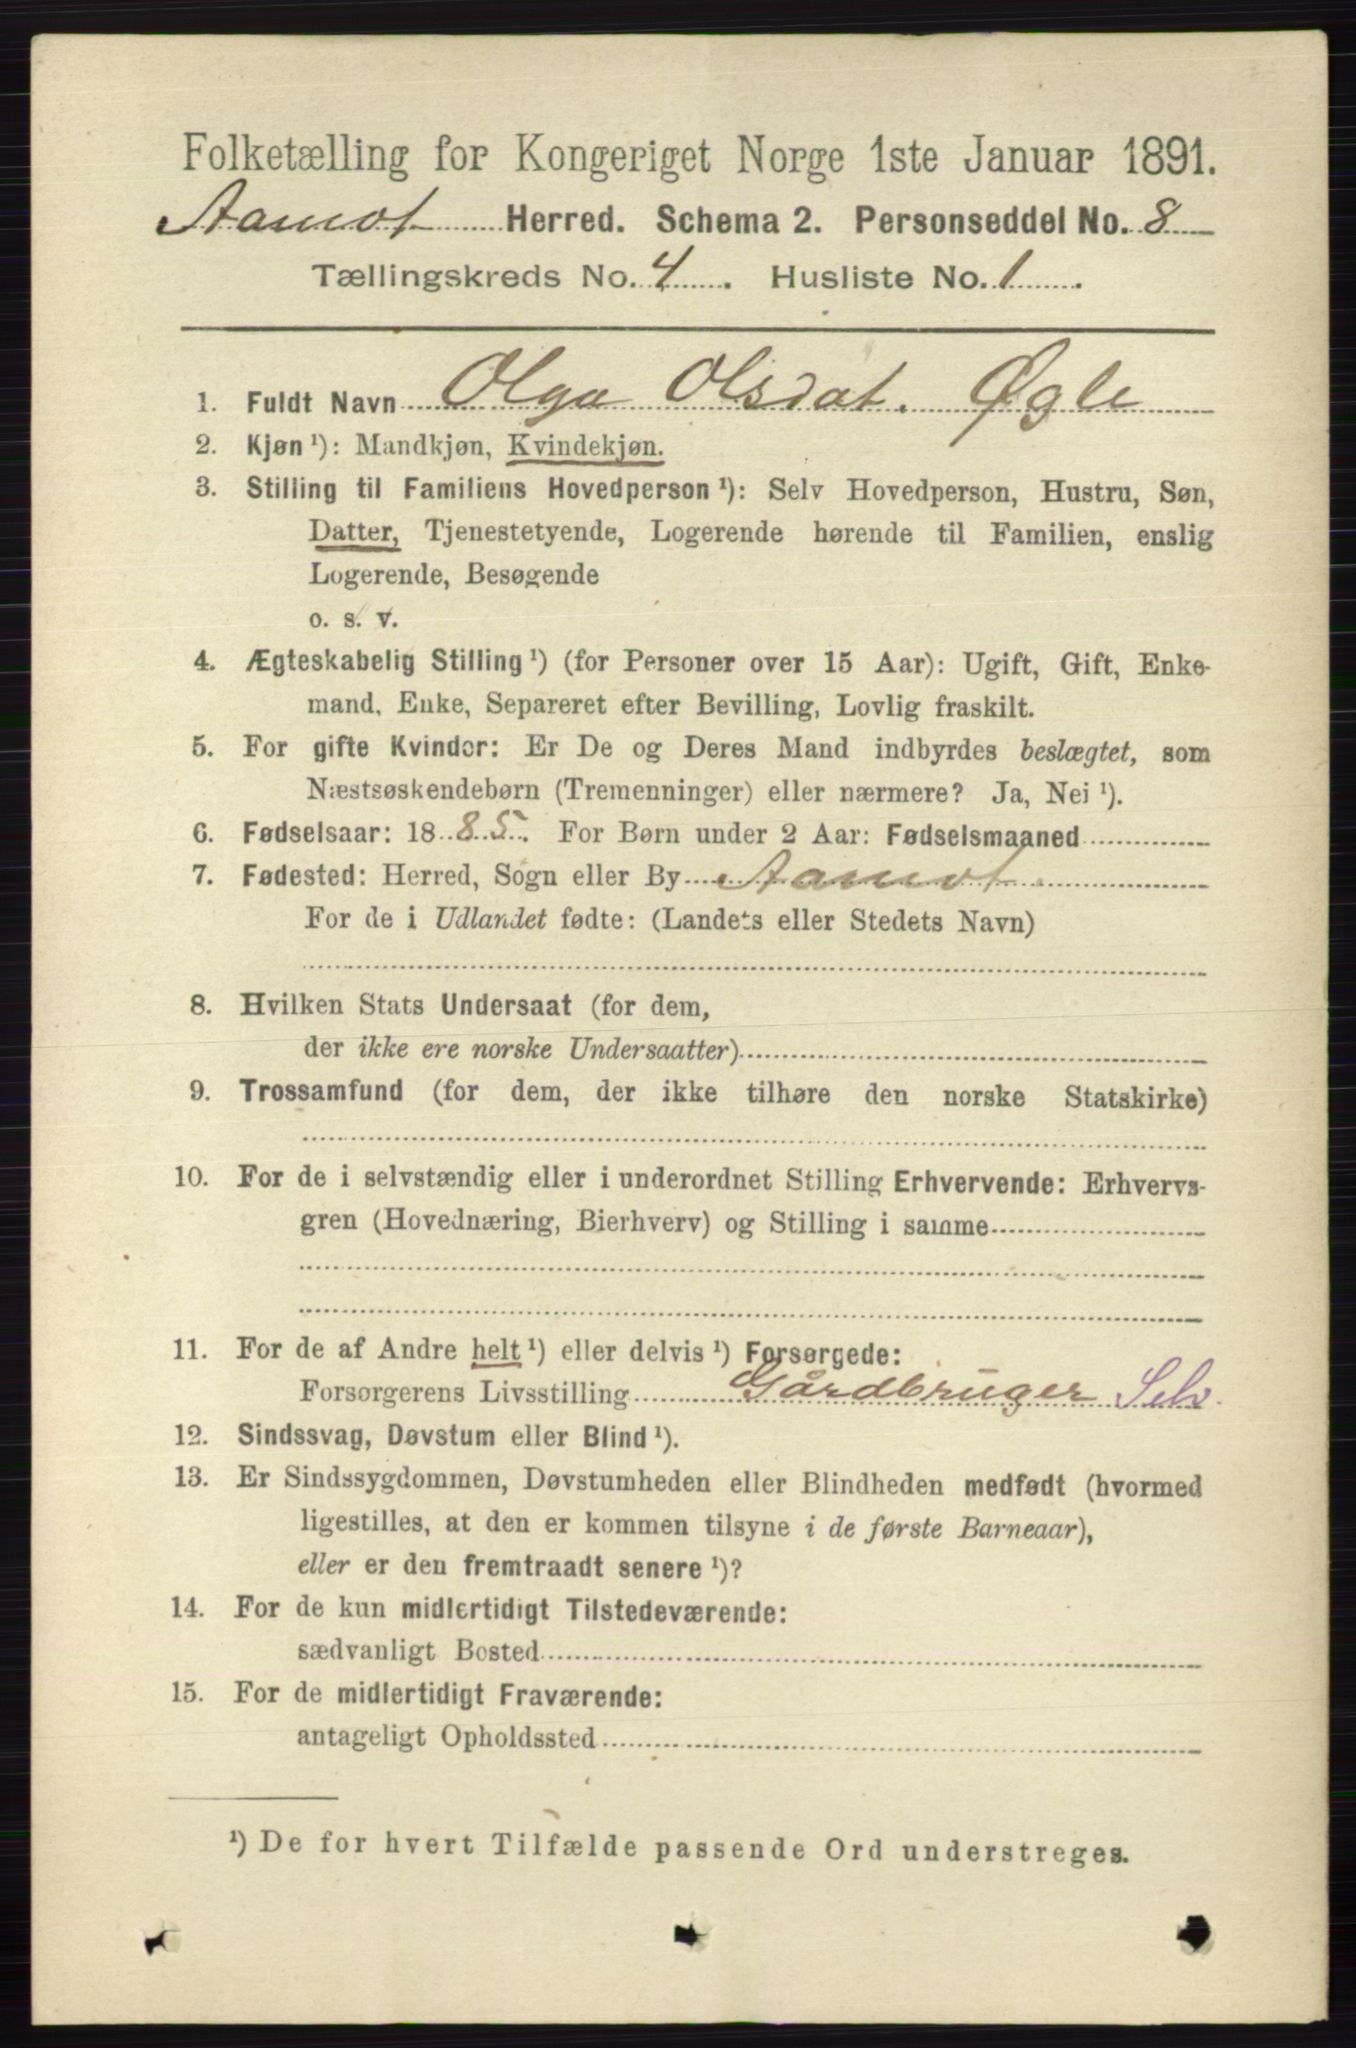 Folketælling for Kongeriget Norge 1ste Januar 1891.
Aamot Herred. Schema 2. Personseddel No. 8
Tællingskreds No. 4. Husliste No. 1.
1. Fuldt Navn Olga Olsdat. Øgle
2. Kjøn ¹): Mandkjøn, Kvindekjøn.
3. Stilling til Familiens Hovedperson ¹): Selv Hovedperson, Hustru, Søn,
Datter, Tjenestetyende, Logerende hørende til Familien, enslig
Logerende, Besøgende
o. s. v.
4. Ægteskabelig Stilling ¹) (for Personer over 15 Aar): Ugift, Gift, Enke-
mand, Enke, Separeret efter Bevilling, Lovlig fraskilt.
5. For gifte Kvinder: Er De og Deres Mand indbyrdes beslægtet, som
Næstsøskendebørn (Tremenninger) eller nærmere? Ja, Nei ¹).
6. Fødselsaar: 1885. For Børn under 2 Aar: Fødselsmaaned
7. Fødested: Herred, Sogn eller By Aamot.
For de i Udlandet fødte: (Landets eller Stedets Navn)
8. Hvilken Stats Undersaat (for dem,
der ikke ere norske Undersaatter)
9. Trossamfund (for dem, der ikke tilhøre den norske Statskirke)
10. For de i selvstændig eller i underordnet Stilling Erhvervende: Erhvervs-
gren (Hovednæring, Bierhverv) og Stilling i samme
11. For de af Andre helt ¹) eller delvis ¹) Forsørgede:
Forsørgerens Livsstilling Gårdbruger Selv.
12. Sindssvag, Døvstum eller Blind ¹).
13. Er Sindssygdommen, Døvstumheden eller Blindheden medfødt (hvormed
ligestilles, at den er kommen tilsyne i de første Barneaar),
eller er den fremtraadt senere ¹)?
14. For de kun midlertidigt Tilstedeværende:
sædvanligt Bosted
15. For de midlertidigt Fraværende:
antageligt Opholdssted
¹) De for hvert Tilfælde passende Ord understreges.